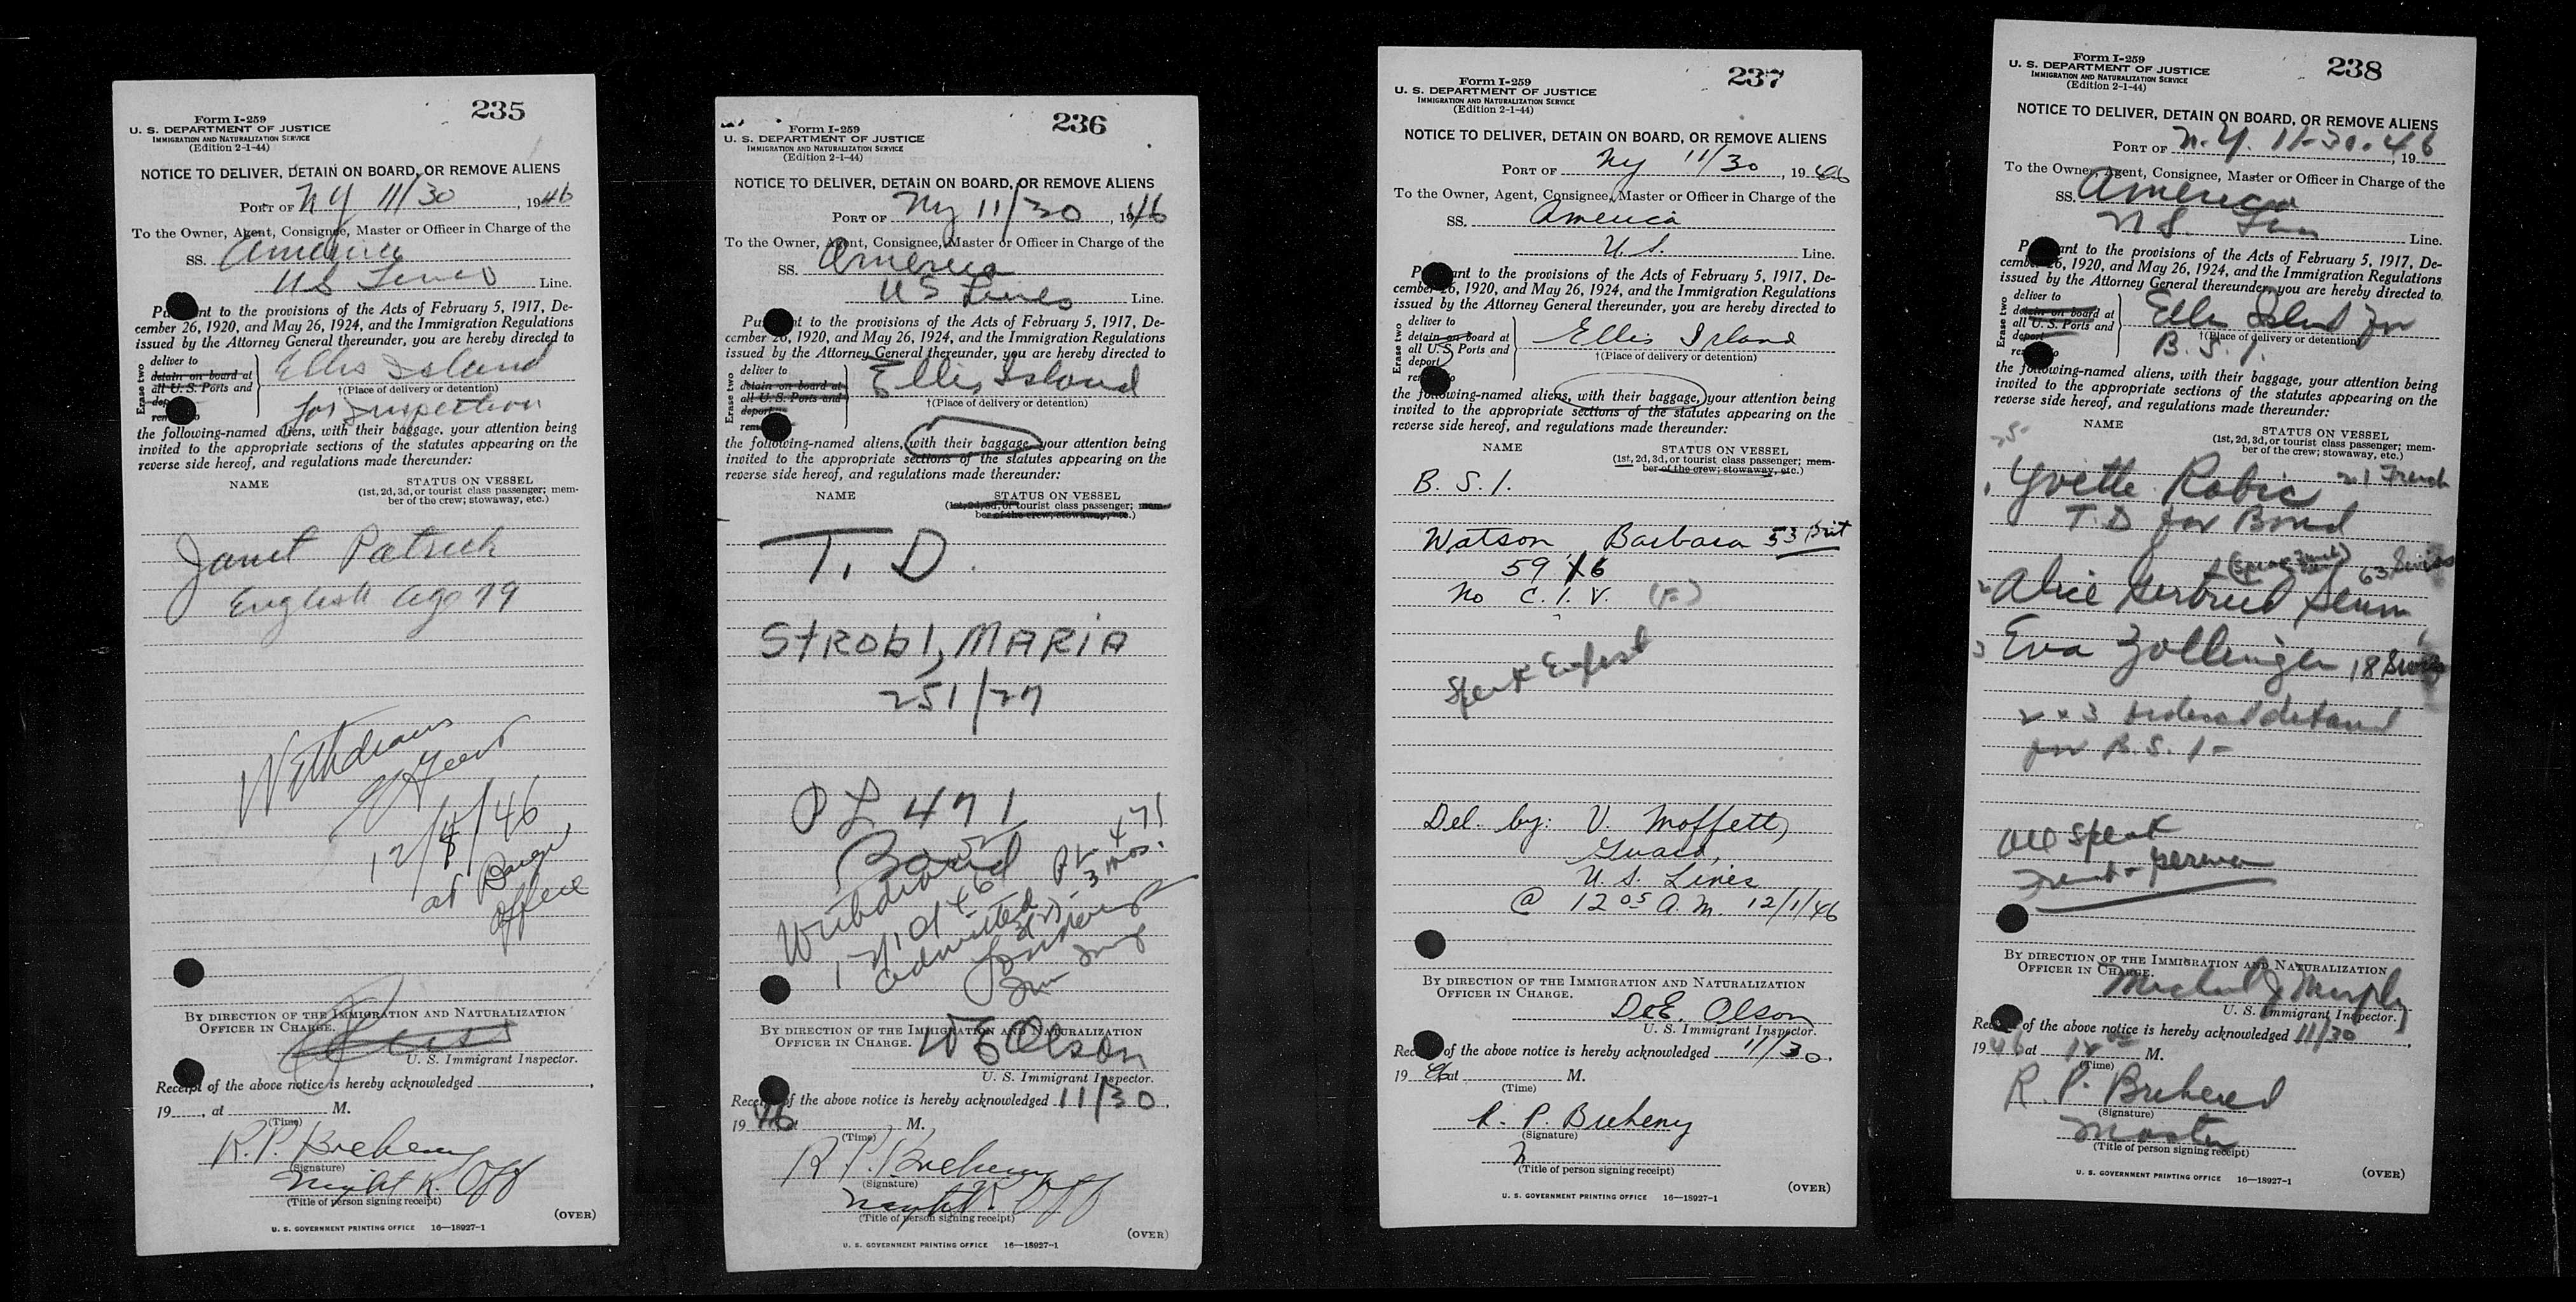 235
Form I-259
U. S. DEPARTMENT OF JUSTICE
IMMIGRATION AND NATURALIZATION SERVICE
(Edition 2-1-44)
NOTICE TO DELIVER, DETAIN ON BOARD, OR REMOVE ALIENS
PORT OF NY 11/30, 1946
To the Owner, Agent, Consignee, Master or Officer in Charge of the
SS. America
US Lines Line.
Pu nt to the provisions of the Acts of February 5, 1917, De-
cember 26, 1920, and May 26, 1924, and the Immigration Regulations
issued by the Attorney General thereunder, you are hereby directed to
Erase two
deliver to
detain on board at
all U. S. Ports and
dep
rem
Ellis Island
†(Place of delivery or detention)
for Inspection
the following-named aliens, with their baggage, your attention being
invited to the appropriate sections of the statutes appearing on the
reverse side hereof, and regulations made thereunder:
NAME
STATUS ON VESSEL
(1st, 2d, 3d, or tourist class passenger; mem-
ber of the crew; stowaway, etc.)
Janet Patrick
English age 19
Withdrawn
12/8/46
at Barge
Office
BY DIRECTION OF THE IMMIGRATION AND NATURALIZATION
OFFICER IN CHARGE.
U. S. Immigrant Inspector.
Receipt of the above notice is hereby acknowledged
19 , at M.
(Time)
R. P. Breheny
(Signature)
Night R. Off
(Title of person signing receipt)
(OVER)
U. S. GOVERNMENT PRINTING OFFICE 16—18927-1
236
Form I-259
U. S. DEPARTMENT OF JUSTICE
IMMIGRATION AND NATURALIZATION SERVICE
(Edition 2-1-44)
NOTICE TO DELIVER, DETAIN ON BOARD, OR REMOVE ALIENS
PORT OF NY 11/30, 1946
To the Owner, Agent, Consignee, Master or Officer in Charge of the
SS. America
US Lines Line.
Pu t to the provisions of the Acts of February 5, 1917, De-
cember 26, 1920, and May 26, 1924, and the Immigration Regulations
issued by the Attorney General thereunder, you are hereby directed to
Erase two
deliver to
detain on board at
all U. S. Ports and
deport
rem
Ellis Island
†(Place of delivery or detention)
the following-named aliens, with their baggage, your attention being
invited to the appropriate sections of the statutes appearing on the
reverse side hereof, and regulations made thereunder:
NAME
STATUS ON VESSEL
(1st, 2d, 3d, or tourist class passenger; mem-
ber of the crew; stowaway, etc.)
T. D.
StRobl, MARiA
251/27
PL 471
Board
PL 471
3 mos.
Withdrawn
admitted
BY DIRECTION OF THE IMMIGRATION AND NATURALIZATION
OFFICER IN CHARGE. Olson
U. S. Immigrant Inspector.
Receipt of the above notice is hereby acknowledged 11/30,
1946 M.
(Time)
R P. Breheny
(Signature)
Night R. Off
(Title of person signing receipt)
(OVER)
U. S. GOVERNMENT PRINTING OFFICE 16—18927-1
237
Form I-259
U. S. DEPARTMENT OF JUSTICE
IMMIGRATION AND NATURALIZATION SERVICE
(Edition 2-1-44)
NOTICE TO DELIVER, DETAIN ON BOARD, OR REMOVE ALIENS
PORT OF NY 11/30, 1946
To the Owner, Agent, Consignee, Master or Officer in Charge of the
SS. America
U. S. Line.
P ant to the provisions of the Acts of February 5, 1917, De-
cember 26, 1920, and May 26, 1924, and the Immigration Regulations
issued by the Attorney General thereunder, you are hereby directed to
Erase two
deliver to
detain on board at
all U. S. Ports and
deport
rem
Ellis Island
†(Place of delivery or detention)
the following-named aliens, with their baggage, your attention being
invited to the appropriate sections of the statutes appearing on the
reverse side hereof, and regulations made thereunder:
NAME
STATUS ON VESSEL
(1st, 2d, 3d, or tourist class passenger; mem-
ber of the crew; stowaway, etc.)
B. S. I.
Watson Barbara 53 Brit
59
No C. I. V. (F)
Speak English
Del. by: V. Moffett,
Guard,
U. S. Lines
@ 12 05 A.M. 12/1/46
BY DIRECTION OF THE IMMIGRATION AND NATURALIZATION
OFFICER IN CHARGE.
Olson
U. S. Immigrant Inspector.
Rec of the above notice is hereby acknowledged 11/30,
1946 at M.
(Time)
R. P. Breheny
(Signature)
(Title of person signing receipt)
(OVER)
U. S. GOVERNMENT PRINTING OFFICE 16—18927-1
238
Form I-259
U. S. DEPARTMENT OF JUSTICE
IMMIGRATION AND NATURALIZATION SERVICE
(Edition 2-1-44)
NOTICE TO DELIVER, DETAIN ON BOARD, OR REMOVE ALIENS
PORT OF N.Y. 11-30-46, 19
To the Owner, Agent, Consignee, Master or Officer in Charge of the
SS. America
Line.
P ant to the provisions of the Acts of February 5, 1917, De-
cember 26, 1920, and May 26, 1924, and the Immigration Regulations
issued by the Attorney General thereunder, you are hereby directed to
Erase two
deliver to
detain on board at
all U. S. Ports and
rem
Ellis Island for
B. S. I.
†(Place of delivery or detention)
the following-named aliens, with their baggage, your attention being
invited to the appropriate sections of the statutes appearing on the
reverse side hereof, and regulations made thereunder:
NAME
STATUS ON VESSEL
(1st, 2d, 3d, or tourist class passenger; mem-
ber of the crew; stowaway, etc.)
1 Yvette Robic 21 French
T. D for Bond
2 Alice 63 Swiss
3 Eva Zollinger 18 Swiss
2 + 3
for B. S. I.
All speak
French + German
BY DIRECTION OF THE IMMIGRATION AND NATURALIZATION
OFFICER IN CHARGE.
Michael J Murphy
U. S. Immigrant Inspector.
Rec of the above notice is hereby acknowledged 11/30,
1946 at 12 M.
(Time)
R. P. Breheny
(Signature)
Master
(Title of person signing receipt)
(OVER)
U. S. GOVERNMENT PRINTING OFFICE 16—18927-1